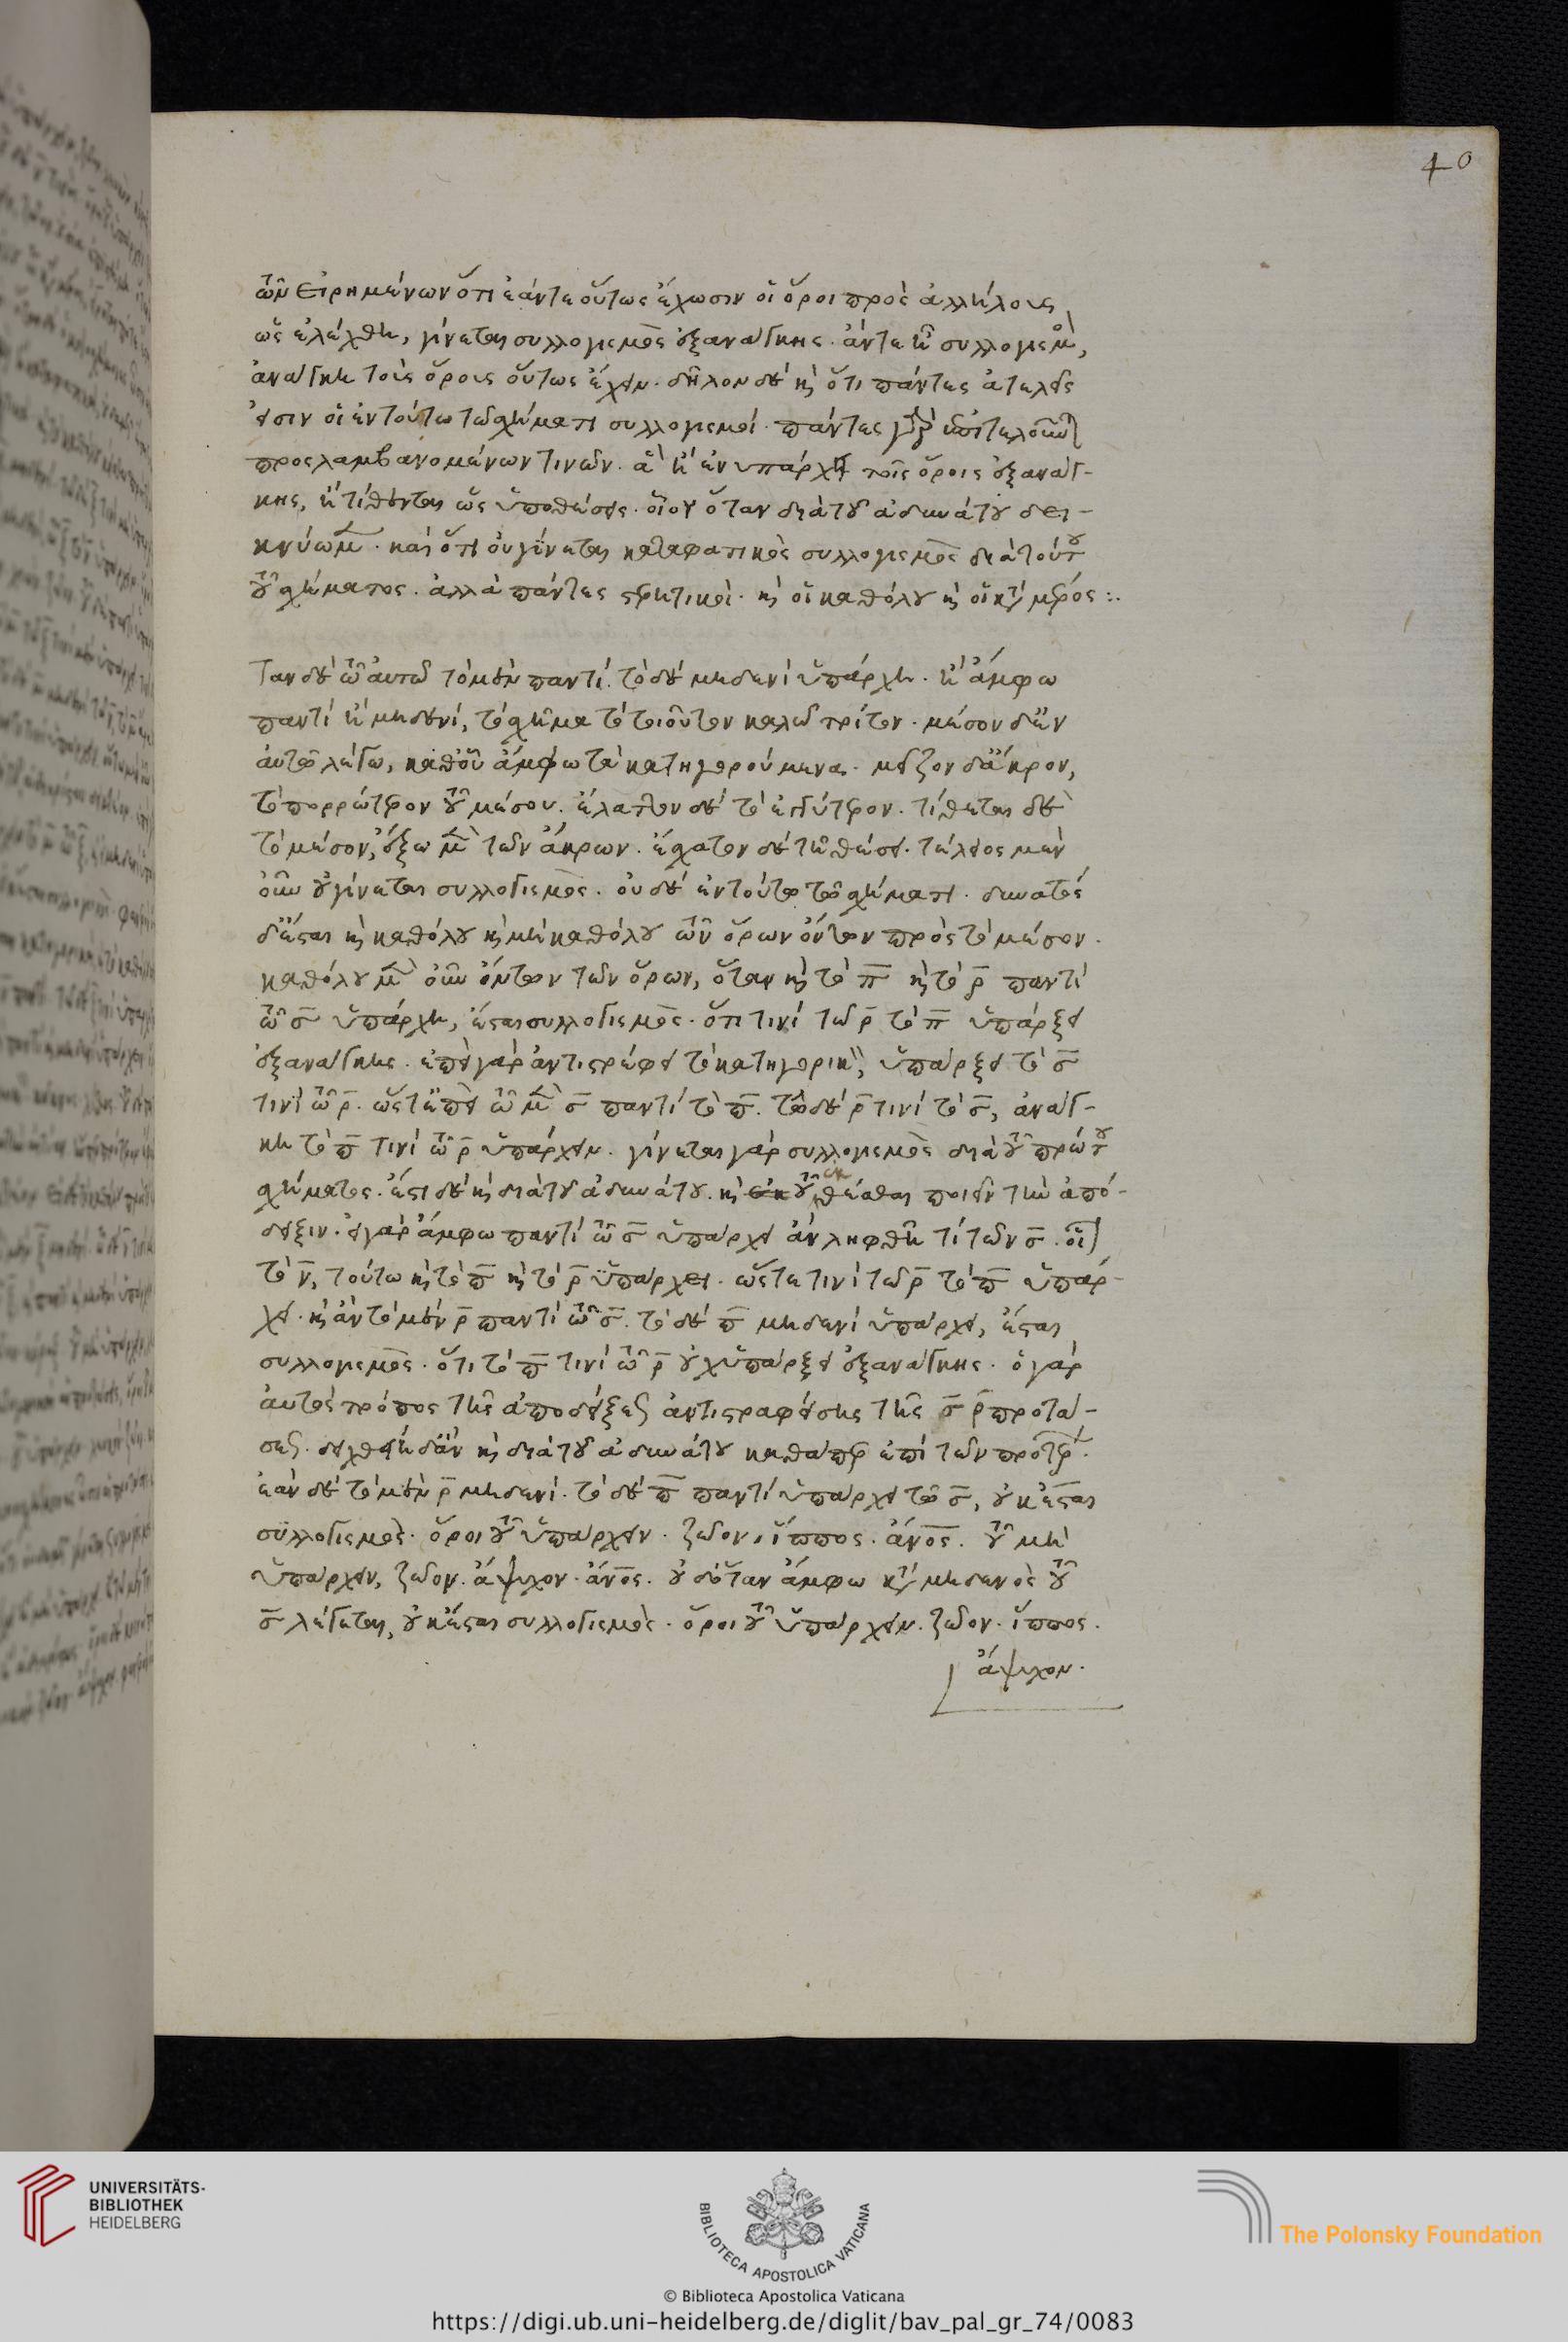 40
τῶν εἰρημένων ὅτι ἐάν τε οὕτως ἔχωσιν οἱ ὅροι πρὸς ἀλλήλους
ὡς ἐλέχθη, γίνεται συλλογισμὸς ἐξανάγκης. ἄν τε ᾖ συλλογισμ,
ἀνάγκη τοὺς ὅρους οὕτως ἔχειν. δῆλον δὲ κ ὅτι πάντες ἀτελεῖς
εἰσιν οἱ ἐν τούτω τῶ σχήματι συλλογισμοί. πάντες γὰρ ἐπιτελοῦνται
προσλαμβανομένων τινῶν. ἃ ἢ ἐνυπάρχει τοῖς ὅροις ἐξανάγ-
κης, ἢ τίθενται ὡς ὑποθέσεις. οἷον ὅταν διὰ τοῦ ἀδυνάτου δει-
κνύωμ. καὶ ὅτι οὐ γίνεται καταφατικὸς συλλογισμὸς διὰ τούτου
τοῦ σχήματος. ἀλλὰ πάντες στερητικοὶ. κ οἱ καθόλου κ οἱ κτ μέρος:.
Ταν δὲ τῶ αυτῶ τὸ μὲν παντί. τὸ δὲ μηδενὶ ὑπάρχη. ἢ ἄμφω
παντὶ ἢ μηδενί, τὸ σχῆμα τὸ τοιοῦτον καλῶ τρίτον. μέσον δ' ἐν
αὐτῶ λέγω, καθ' οὗ ἄμφω τὰ κατηγορούμενα. μεῖζον δ' ἄκρον,
τὸ πορρώτερον τοῦ μέσου. ἔλαττον δὲ τὸ ἐγγύτερον. τίθεται δὲ
τὸ μέσον, ἔξω μ τῶν ἄκρων. ἔσχατον δὲ τῆ θέσει. τέλειος μὲν
οὖν οὐ γίνεται συλλογισμὸς. οὐδὲ ἐν τούτω τῶ σχήματι. δυνατὸς
δ' ἔσται κ καθόλου κ μὴ καθόλου τῶν ὅρων ὄντων πρὸς τὸ μέσον.
καθόλου μ οὖν ὄντων τῶν ὅρων, ὅταν κ τὸ π κ τὸ ρ παντὶ
τῶ σ ὑπάρχη, ἔσται συλλογισμὸς. ὅτι τινὶ τῶ ρ τὸ π ὑπάρξει
ἐξανάγκης. ἐπεὶ γὰρ ἀντιστρέφει τὸ κατηγορικ, ὑπάρξει τὸ σ
τινὶ τῶ ρ. ὥστ' ἐπεὶ τῶ μ σ παντὶ τὸ π. τῶ δὲ ρ τινὶ τὸ σ, ἀνάγ-
κη τὸ π τινὶ τῶ ρ ὑπάρχειν. γίνεται γὰρ συλλογισμὸς διὰ τοῦ πρώτου
σχήματος. ἔστι δὲ κ διὰ τοῦ ἀδυνάτου. κ τοῦ ἐκθέσθαι ποιεῖν τὴν ἀπό-
δειξιν. εἰ γὰρ ἄμφω παντὶ τῶ σ ὑπάρχει ἂν ληφθῆ τί τῶν σ. οἷ
τὸ ν, τούτω κ τὸ π κ τὸ ρ ὑπάρχει. ὥστε τινὶ τῶ ρ τὸ π ὑπάρ-
χει. κ ἂν τὸ μὲν ρ παντὶ τῶ σ. τὸ δὲ π μηδενὶ ὑπάρχει, ἔσται
συλλογισμὸς. ὅτι τὸ π τινὶ τῶ ρ οὐχ ὑπάρξει ἐξανάγκης. ὁ γὰρ
αὐτὸς τρόπος τῆς ἀποδείξεως ἀντιστραφείσης τῆς σ ρ προτά-
σεως. δειχθείη δ' ἂν κ διὰ τοῦ ἀδυνάτου καθάπερ ἐπὶ τῶν πρότερ.
ἐὰν δὲ τὸ μὲν ρ μηδενί. τὸ δὲ π παντὶ ὑπάρχει τῶ σ, οὐκ ἔσται
συλλογισμὸς. ὅροι τοῦ ὑπάρχειν. ζῶον, ἵππος. ἄνος. τοῦ μὴ
ὑπάρχειν, ζῶον. ἄψυχον. ἄνος. οὐδ' ὅταν ἄμφω κτ μηδενὸς τοῦ
σ λέγεται, οὐκ ἔσται συλλογισμὸς. ὅροι τοῦ ὑπάρχειν. ζῶον. ἵππος.
ἄψυχον.
UNIVERSITÄTS-
BIBLIOTHEK
HEIDELBERG
BIBLIOTECA APOSTOLICA VATICANA
The Polonsky Foundation
© Biblioteca Apostolica Vaticana
https://digi.ub.uni-heidelberg.de/diglit/bav_pal_gr_74/0083